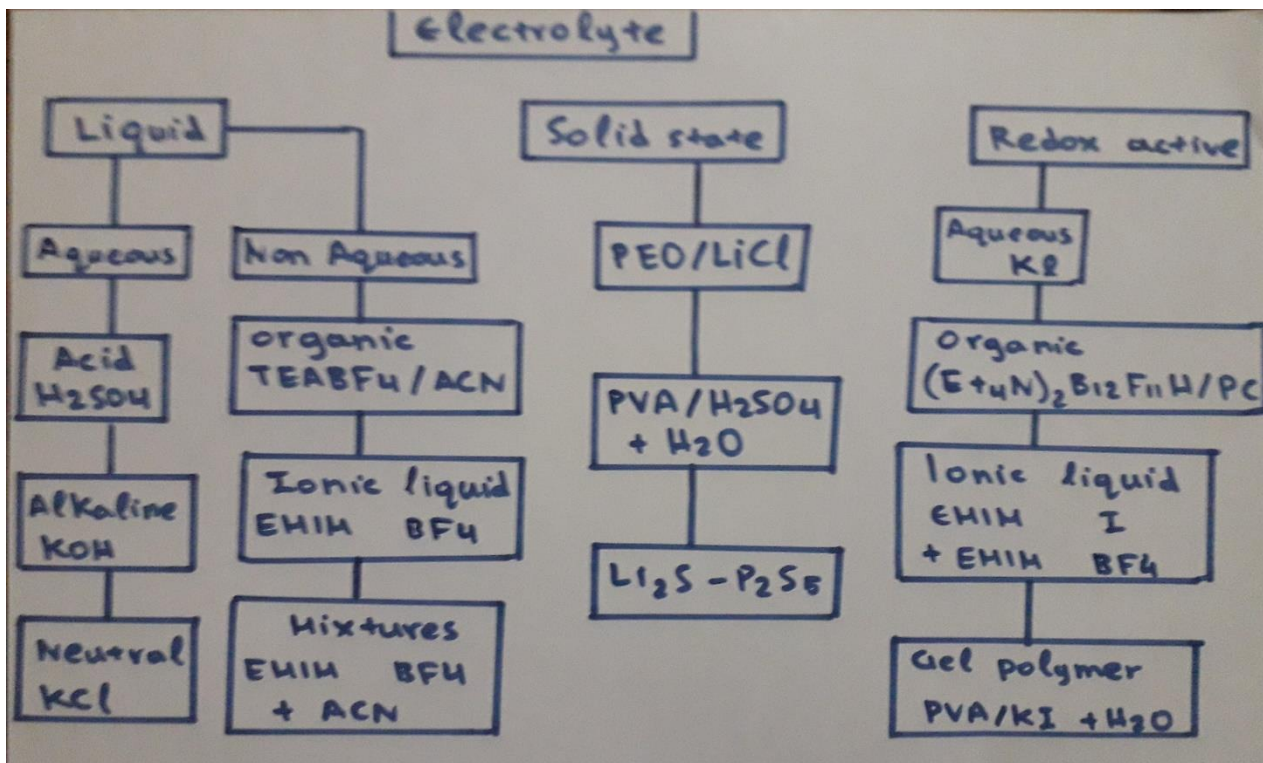 Electrolyte
Liquid
Aqueous
Acid
H2SO4
Alkaline
KOH
Neutral
KCl
Non Aqueous
organic
TEABF4/ACN
Ionic liquid
EMIM BF4
Mixtures
EMIM BF4
+ ACN
Solid state
PEO/LiCl
PVA/H2SO4
+ H2O
Li2S-P2S5
Redox active
Aqueous
Organic
(Et4N)2B12F11H/PC
Ionic liquid
EMIM I
+ EMIM BF4
Gel polymer
PVA/KI +H2O